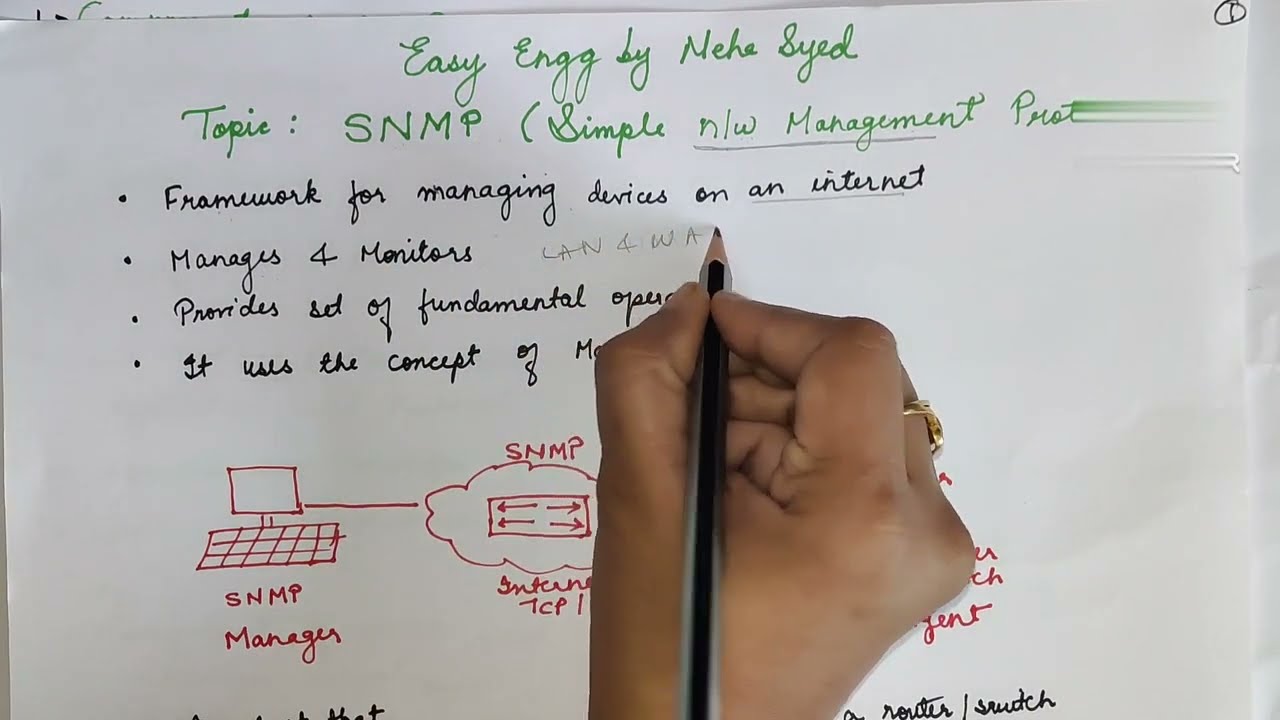 ①
Easy Engg by Neha Syed
Topic: SNMP (Simple n/w Management Prot
• Framework for managing devices on an internet
• Manages & Monitors LAN & WA
• Provides set of fundamental
• It uses the concept of
SNMP
TCP/
SNMP
Manager
a router/switch